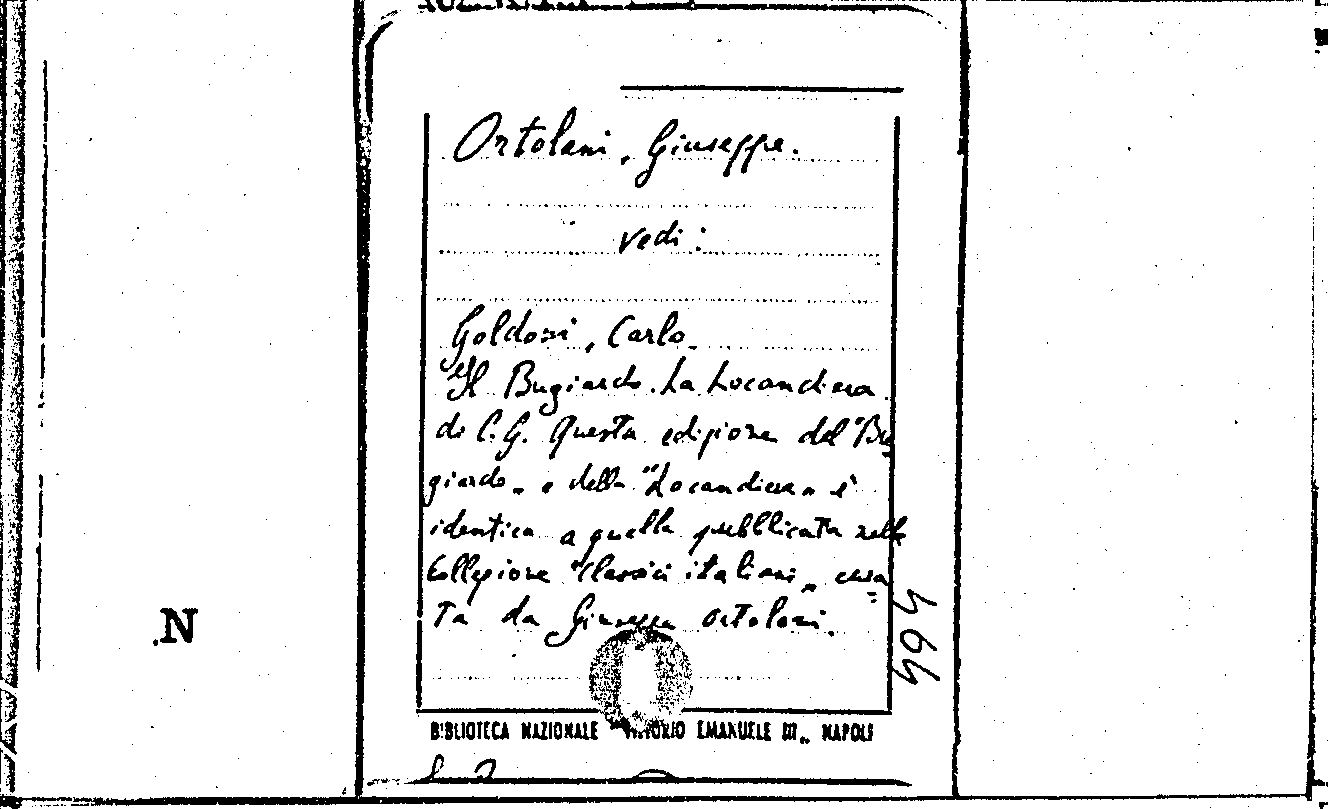 Ortolani, Giuseppe.
vedi:
Goldoni, Carlo.
Il Bugiardo. La Locandiera
di C. G. Questa edizione del "Bu
giardo„ e della "Locandiera„ è
identica a quella pubblicata nella
Collezione "Classici italiani„ cura
ta da Giuseppe Ortolani.
.N
BIBLIOTECA NAZIONALE "VITTORIO EMANUELE III„ NAPOLI